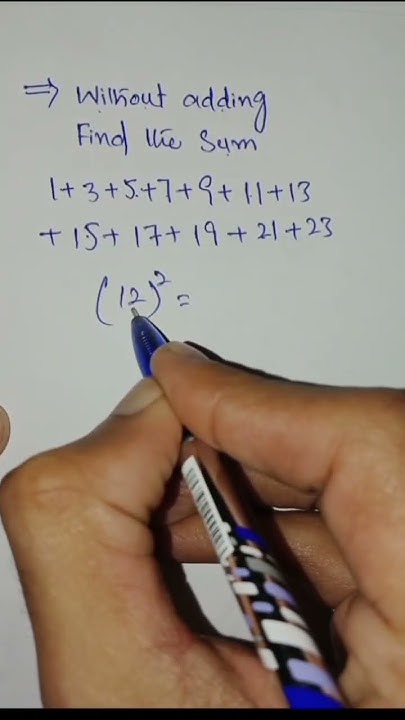 ⇒ Without adding
Find the Sum
1+3+5+7+9+11+13
+15+17+19+21+23
(12)² =